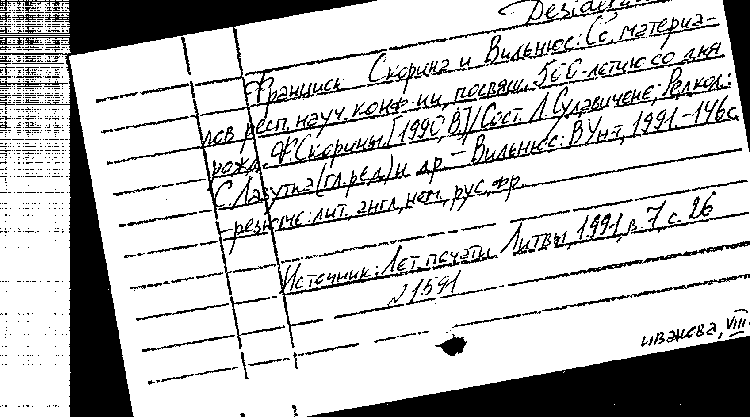 Desidera
Франциск Скорина и Вильнюс: Сб. материа-
лов респ. науч. конф-ии, посвящ. 500-летию со дня
рожд. Ф. Скорины, [1990, В.] / Сост. Л. Сулавичене; Редкол.:
С. Лазутка (гл. ред.) и др. – Вильнюс: ВУн-т, 1991. – 146с.
– резюме: лит., англ., нем., рус., фр.
Источник: Лет. печати Литвы, 1991, в. 7, с. 26
№1591
VIII